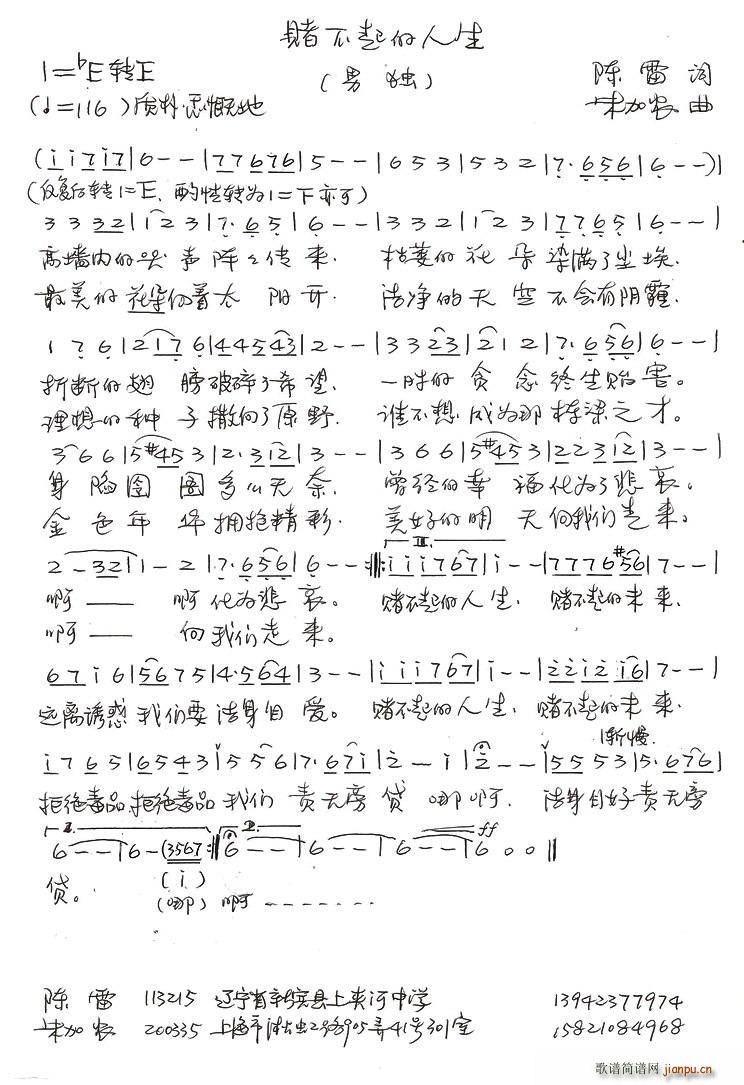 赌不起的人生
1=♭E转E
(男 独)
陈雷 词
(♩=116) 质朴.感慨地
朱加农 曲
(i i 7 i 7 | 6 - - | 7 7 6 7 6 | 5 - - | 6 5 3 | 5 3 2 | 7· 6 5 6 | 6 - - ) |
(反复后转1=E, 酌性转为1=F亦可)
3 3 3 2 | 1 2 3 | 7· 6 5 | 6 - - | 3 3 2 | 1 2 3 | 7 7 6 5 | 6 - - |
高墙内的哭声阵々传来. 枯萎的花朵染满了尘埃.
最美的花朵向着太阳开. 洁净的天空不会有阴霾.
1 7 6 | 2 1 7 6 | 4 4 5 4 3 | 2 - - | 3 3 2 3 | 2 1 2 | 7· 6 5 6 | 6 - - |
折断的翅膀破碎了希望. 一时的贪念终生贻害。
理想的种子撒向了原野. 谁不想成为那栋梁之才。
3 6 6 | 5 #4 5 3 | 2· 3 1 2 | 3 - - | 3 6 6 | 5 #4 5 3 | 2 2 3 1 2 | 3 - - |
身陷囹圄多么无奈. 曾经的幸福化为了悲哀。
金色年华拥抱精彩. 美好的明天向我们走来。
2 - 3 2 | 1 - 2 | 7· 6 5 6 | 6 - - :‖: i i i 7 6 7 | i - - | 7 7 7 6 #5 6 | 7 - - |
啊 —— 啊化为悲哀。 赌不起的人生. 赌不起的未来.
啊 —— 向我们走来。
6 7 i 6 | 5 6 7 5 | 4· 5 6 4 | 3 - - | i i i 7 6 7 | i - - | 2 2 i 2 i 6 | 7 - - |
远离诱惑我们要洁身自爱。 赌不起的人生. 赌不起的未来.
渐慢
i 7 6 5 | 6 5 4 3 | 5 5 6 | 7· 6 7 i | 2 - i | 2 - - | 5 5 5 3 | 5· 6 7 6 |
拒绝毒品拒绝毒品我们责无旁贷哪啊. 洁身自好责无旁
6 - - | 6 - (3567 :‖ 6 - - | 6 - - | 6 - - | 6 0 0 ‖
ff
贷。
(i)
(哪) 啊 - - - - - - -
陈雷 113215 辽宁省新宾县上夹河中学 13942377974
朱加农 200335 上海市 905弄41号301室 15821084968
歌谱简谱网
jianpu.cn